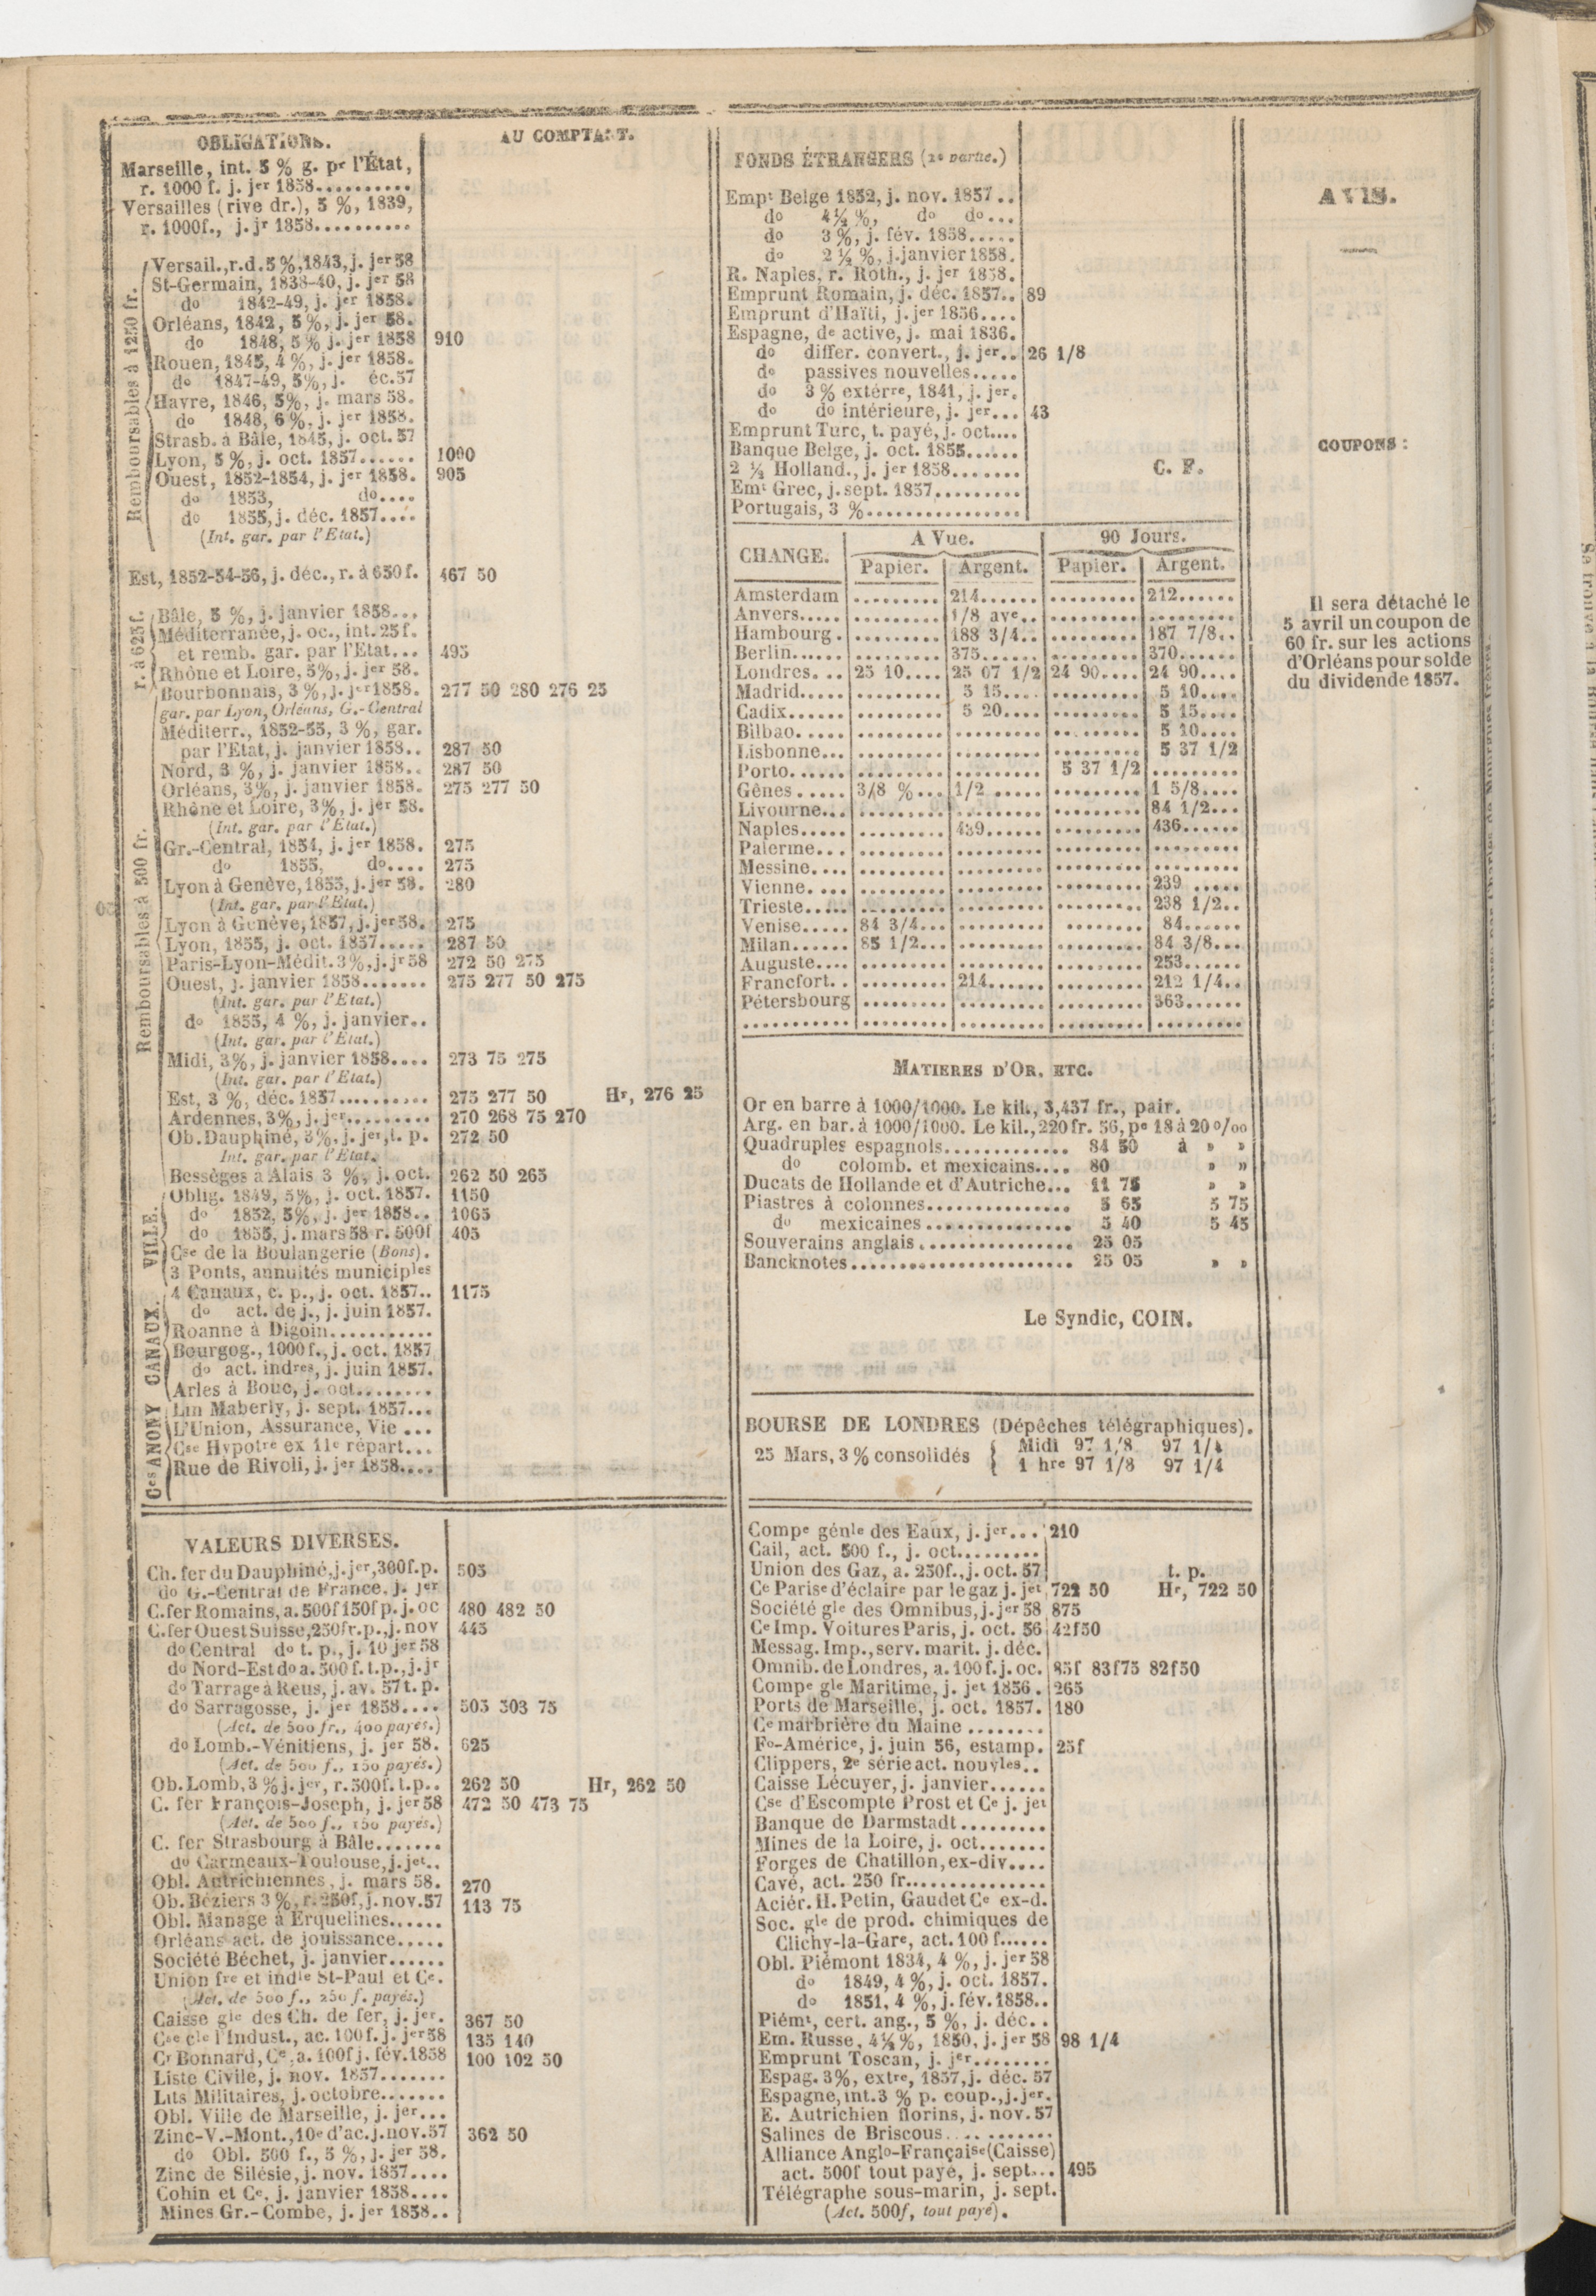 OBLIGATIONS.
AU COMPTANT.
Marseille, int. 5 % g. pr l'État,
r. 1000 f. j. jer 1858..........
Versailles (rive dr.), 5 %, 1839,
r. 1000f., j. jr 1858..........
Remboursables à 1250 fr.
Versail.,r.d.5%,1843,j.jer58
St-Germain, 1838-40, j. jer 58
do 1842-49, j. jer 1858.
Orléans, 1842, 5 %, j. jer 58.
do 1848, 5 % j. jer 1858 910
Rouen, 1845, 4 %, j. jer 1858.
do 1847-49, 5%, j. éc.57
Havre, 1846, 5%, j. mars 58.
do 1848, 6 %, j. jer 1858.
Strasb. à Bâle, 1845, j. oct. 57
Lyon, 5 %, j. oct. 1857...... 1000
Ouest, 1852-1854, j. jer 1858. 905
do 1853, do....
do 1855, j. déc. 1857....
(Int. gar. par l'Etat.)
Est, 1852-54-56, j. déc., r. à 650f. 467 50
r. à 625f.
Bâle, 5 %, j. janvier 1858...
Méditerranée, j. oc., int. 25f.
et remb. gar. par l'Etat... 495
Rhône et Loire, 5%, j. jer 58.
Remboursables à 500 fr.
Bourbonnais, 3 %, j. jer 1858. 277 50 280 276 25
gar. par Lyon, Orléans, G.-Central
Méditerr., 1852-55, 3 %, gar.
par l'Etat, j. janvier 1858.. 287 50
Nord, 3 %, j. janvier 1858.. 287 50
Orléans, 3%, j. janvier 1858. 275 277 50
Rhône et Loire, 3%, j. jer 58.
(Int. gar. par l'Etat.)
Gr.-Central, 1854, j. jer 1858. 275
do 1855, do.... 275
Lyon à Genève, 1855, j. jer 58. 280
(Int. gar. par l'Etat.)
Lyon à Genève, 1857, j. jer 58. 275
Lyon, 1855, j. oct. 1857..... 287 50
Paris-Lyon-Médit. 3%, j. jr 58 272 50 275
Ouest, j. janvier 1858....... 275 277 50 275
(Int. gar. par l'Etat.)
do 1855, 4 %, j. janvier..
(Int. gar. par l'Etat.)
Midi, 3%, j. janvier 1858.... 273 75 275
(Int. gar. par l'Etat.)
Est, 3 %, déc. 1857.......... 275 277 50 Hr, 276 25
Ardennes, 3%, j. jer......... 270 268 75 270
Ob. Dauphiné, 3%, j. jer, t. p. 272 50
Int. gar. par l'Etat.
Bessèges à Alais 3 %, j. oct. 262 50 265
VILLE.
Oblig. 1849, 5%, j. oct. 1857. 1150
do 1852, 5%, j. jer 1858.. 1065
do 1855, j. mars 58 r. 500f 405
Cse de la Boulangerie (Bons).
3 Ponts, annuités municiples
CANAUX.
4 Canaux, c. p., j. oct. 1857.. 1175
do act. de j., j. juin 1857.
Roanne à Digoin...........
Bourgog., 1000f., j. oct. 1857
do act. indres, j. juin 1857.
Arles à Bouc, j. oct........
Ces ANONY
Lin Maberly, j. sept. 1857...
L'Union, Assurance, Vie ...
Cse Hypotre ex 11e répart...
Rue de Rivoli, j. jer 1858....
VALEURS DIVERSES.
Ch. fer du Dauphiné, j. jer, 300f.p. 505
do G.-Central de France, j. jer
C. fer Romains, a. 500f 150f p. j. oc 480 482 50
C. fer Ouest Suisse, 250fr. p., j. nov 445
do Central do t. p., j. 10 jer 58
do Nord-Est do a. 500 f. t. p., j. jr
do Tarrage à Reus, j. av. 57 t. p.
do Sarragosse, j. jer 1858.... 505 503 75
(Act. de 500 fr., 400 payés.)
do Lomb.-Vénitiens, j. jer 58. 625
(Act. de 500 f., 150 payés.)
Ob. Lomb, 3 % j. jer, r. 500f. t. p.. 262 50 Hr, 262 50
C. fer François-Joseph, j. jer 58 472 50 473 75
(Act. de 500 f., 150 payés.)
C. fer Strasbourg à Bâle.......
do Carmeaux-Toulouse, j. jet..
Obl. Autrichiennes, j. mars 58. 270
Ob. Béziers 3 %, r. 250f, j. nov. 57 113 75
Obl. Manage à Erquelines......
Orléans act. de jouissance.....
Société Béchet, j. janvier......
Union fre et indle St-Paul et Ce.
(Act. de 500 f., 250 f. payés.)
Caisse gle des Ch. de fer, j. jer. 367 50
Cse cle l'Indust., ac. 100f. j. jer 58 135 140
Cr Bonnard, Ce, a. 100f j. fév. 1858 100 102 50
Liste Civile, j. nov. 1857.......
Lits Militaires, j. octobre.......
Obl. Ville de Marseille, j. jer...
Zinc-V.-Mont., 10e d'ac. j. nov. 57 362 50
do Obl. 500 f., 5 %, j. jer 58.
Zinc de Silésie, j. nov. 1857....
Cohin et Ce, j. janvier 1858....
Mines Gr.-Combe, j. jer 1858..
FONDS ÉTRANGERS (2e partie.)
Empt Belge 1852, j. nov. 1857..
do 4½ %, do do...
do 3 %, j. fév. 1858.....
do 2 ½ %, j. janvier 1858.
R. Naples, r. Roth., j. jer 1858.
Emprunt Romain, j. déc. 1857.. 89
Emprunt d'Haïti, j. jer 1856....
Espagne, de active, j. mai 1836.
do differ. convert., j. jer.. 26 1/8
do passives nouvelles.....
do 3 % extérre, 1841, j. jer.
do do intérieure, j. jer... 43
Emprunt Turc, t. payé, j. oct....
Banque Belge, j. oct. 1855......
2 ½ Holland., j. jer 1858....... C. F.
Emt Grec, j. sept. 1857.........
Portugais, 3 %................
CHANGE. A Vue. 90 Jours.
Papier. Argent. Papier. Argent.
Amsterdam ......... 214...... ......... 212......
Anvers..... ......... 1/8 ave.. ......... .........
Hambourg. ......... 188 3/4.. ......... 187 7/8..
Berlin...... ......... 375...... ......... 370......
Londres... 25 10.... 25 07 1/2 24 90.... 24 90....
Madrid..... ......... 5 15.... ......... 5 10....
Cadix...... ......... 5 20.... ......... 5 15....
Bilbao..... ......... ......... ......... 5 10....
Lisbonne... ......... ......... ......... 5 37 1/2
Porto...... ......... ......... 5 37 1/2 .........
Gênes..... 3/8 %... 1/2 ..... ......... 1 5/8....
Livourne... ......... ......... ......... 84 1/2...
Naples..... ......... 439...... ......... 436......
Palerme... ......... ......... ......... .........
Messine.... ......... ......... ......... .........
Vienne.... ......... ......... ......... 239 .....
Trieste..... ......... ......... ......... 238 1/2..
Venise..... 84 3/4... ......... ........ 84......
Milan...... 85 1/2... ......... ......... 84 3/8...
Auguste.... ......... ......... ......... 253......
Francfort.. ......... 214...... ......... 212 1/4..
Pétersbourg ......... ......... ......... 363......
MATIERES D'OR, ETC.
Or en barre à 1000/1000. Le kil., 3,437 fr., pair.
Arg. en bar. à 1000/1000. Le kil., 220 fr. 56, pe 18 à 20 o/oo
Quadruples espagnols............. 84 50 à » »
do colomb. et mexicains.... 80 » »
Ducats de Hollande et d'Autriche... 11 75 » »
Piastres à colonnes............... 5 65 5 75
do mexicaines............... 5 40 5 45
Souverains anglais................ 25 05
Bancknotes....................... 25 05 » »
Le Syndic, COIN.
BOURSE DE LONDRES (Dépêches télégraphiques).
25 Mars, 3 % consolidés { Midi 97 1/8 97 1/4
1 hre 97 1/8 97 1/4
Compe génle des Eaux, j. jer... 210
Cail, act. 500 f., j. oct.........
Union des Gaz, a. 250f., j. oct. 57 t. p.
Ce Parise d'éclaire par le gaz j. jet 722 50 Hr, 722 50
Société gle des Omnibus, j. jer 58 875
Ce Imp. Voitures Paris, j. oct. 56 42f50
Messag. Imp., serv. marit. j. déc.
Omnib. de Londres, a. 100 f. j. oc. 85f 83f75 82f50
Compe gle Maritime, j. jet 1856. 265
Ports de Marseille, j. oct. 1857. 180
Ce marbrière du Maine ........
Fo-Américe, j. juin 56, estamp. 25f
Clippers, 2e série act. nouvles..
Caisse Lécuyer, j. janvier......
Cse d'Escompte Prost et Ce j. jet
Banque de Darmstadt.........
Mines de la Loire, j. oct.......
Forges de Chatillon, ex-div....
Cavé, act. 250 fr...............
Aciér. H. Petin, Gaudet Ce ex-d.
Soc. gle de prod. chimiques de
Clichy-la-Gare, act. 100 f......
Obl. Piémont 1834, 4 %, j. jer 58
do 1849, 4 %, j. oct. 1857.
do 1851, 4 %, j. fév. 1858..
Piémt, cert. ang., 5 %, j. déc..
Em. Russe, 4½ %, 1850, j. jer 58 98 1/4
Emprunt Toscan, j. jer........
Espag. 3%, extre, 1857, j. déc. 57
Espagne, int. 3 % p. coup., j. jer.
E. Autrichien florins, j. nov. 57
Salines de Briscous............
Alliance Anglo-Française (Caisse)
act. 500f tout payé, j. sept... 495
Télégraphe sous-marin, j. sept.
(Act. 500f, tout payé).
AVIS.
COUPONS :
Il sera détaché le
5 avril un coupon de
60 fr. sur les actions
d'Orléans pour solde
du dividende 1857.